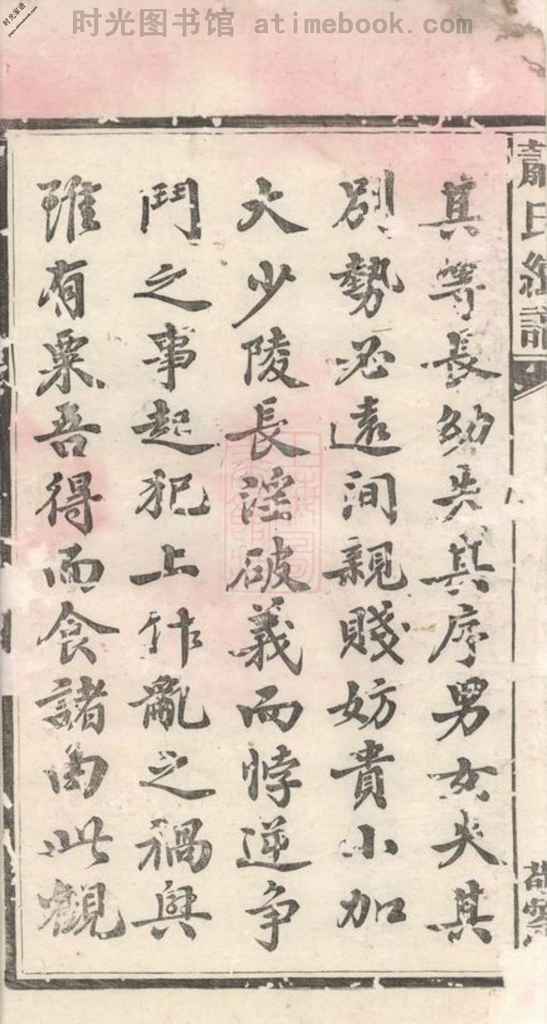 时光图书馆 atimebook.com
蕭氏續譜
其等長幼失其序男女失其
別勢必遠间親賤妨貴小加
大少陵長淫破義而悖逆争
鬥之事起犯上作亂之禍興
雖有粟吾得而食諸由此觀